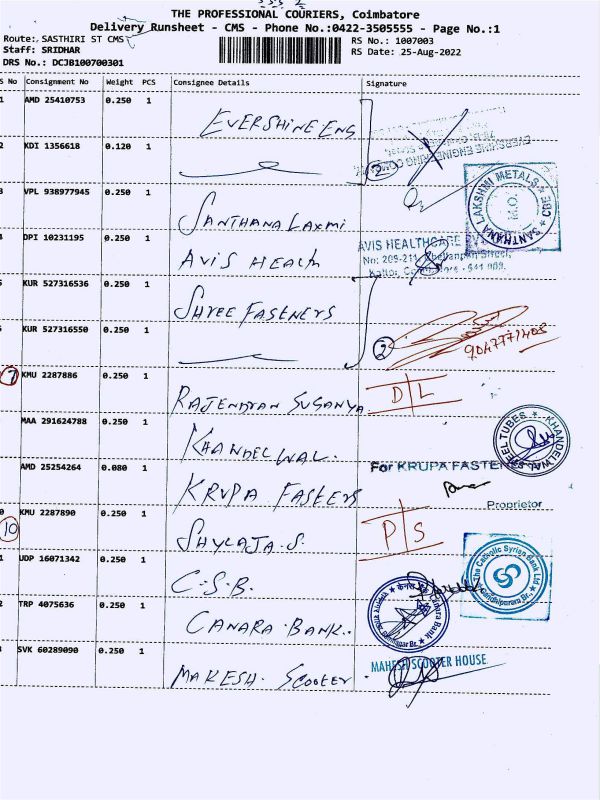 THE PROFESSIONAL COURIERS, Coimbatore
Delivery Runsheet - CMS - Phone No.:0422-3505555 - Page No.:1
Route: SASTHIRI ST CMS
RS No.: 1007003
Staff: SRIDHAR
RS Date: 25-Aug-2022
DRS No.: DCJB100700301
S No Consignment No Weight PCS Consignee Details Signature
1 AMD 25410753 0.250 1 EVERSHINE ENG
2 KDI 1356618 0.120 1
2
EVERSHINE ENGINEERING
3 VPL 938977945 0.250 1 SANTHANA LAXMI
SANTHANA LAKSHMI METALS ★ CBE ★
4 DPI 10231195 0.250 1 AVIS HEALTH
AVIS HEALTHCARE
No: 209-211, Street,
KUR 527316536 0.250 1 SHREE FASTNERS
KUR 527316550 0.250 1
2
9047771408
7 KMU 2287886 0.250 1 RAJENDRAN SUGANYA
D L
MAA 291624788 0.250 1 KHANDELWAL
KHANDELWAL STEEL TUBES
AMD 25254264 0.080 1 KRUPA FASTERS
For KRUPA FASTENERS
Proprietor
0 KMU 2287890 0.250 1 SHYLAJA. S.
10
P S
1 UDP 16071342 0.250 1 C. S. B.
The Catholic Syrian Bank Ltd
Gandhipuram Br.
2 TRP 4075636 0.250 1 CANARA. BANK.
Canara Bank
3 SVK 60289090 0.250 1 MAKESH. SCOOTER
MAHESH SCOOTER HOUSE